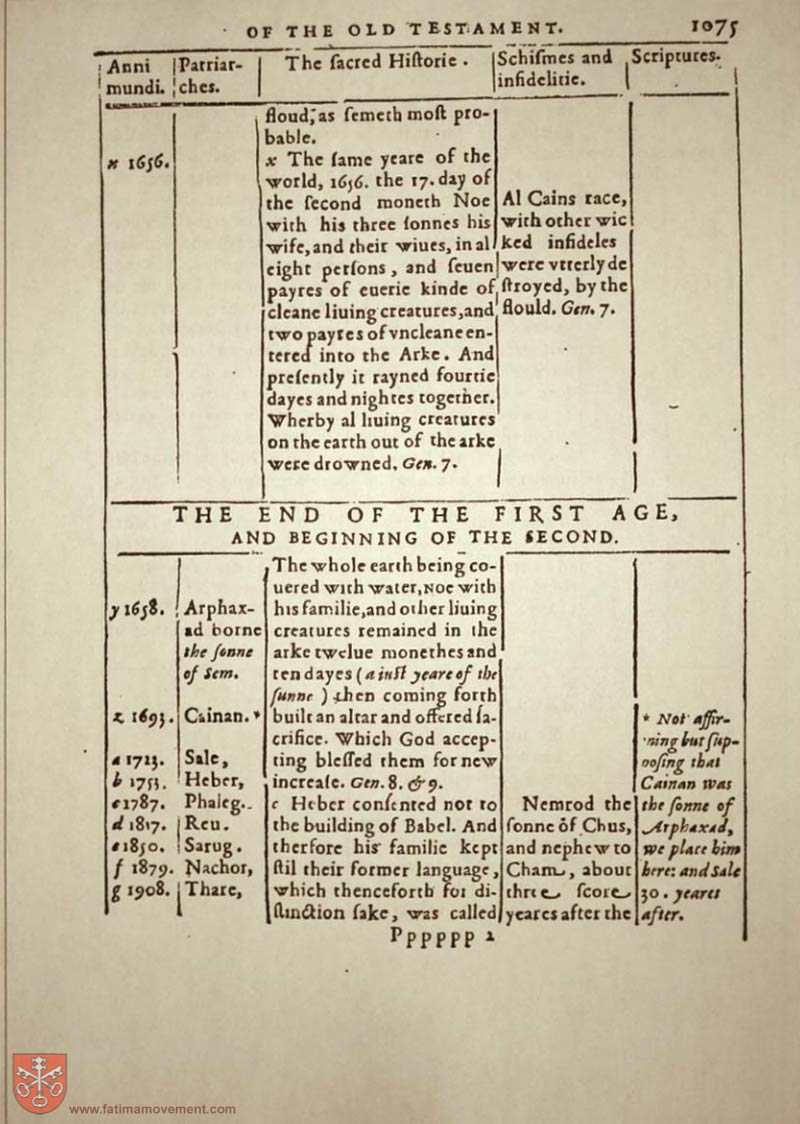 OF THE OLD TESTAMENT. 1075
Anni mundi.
Patriarches.
The sacred Historie.
Schiſmes and infidelitie.
Scriptures.
floud, as ſemeth moſt pro-
bable.
x 1656.
x The ſame yeare of the
world, 1656. the 17. day of
the ſecond moneth Noe
with his three ſonnes his
wife, and their wiues, in al
eight perſons, and ſeuen
payres of euerie kinde of
cleane liuing creatures, and
two payres of vncleane en-
tered into the Arke. And
preſently it rayned fourtie
dayes and nightes together.
Wherby al liuing creatures
on the earth out of the arke
were drowned. Gen. 7.
Al Cains race,
with other wic
ked infideles
were vtterly de
ſtroyed, by the
flould. Gen. 7.
THE END OF THE FIRST AGE,
AND BEGINNING OF THE SECOND.
y 1658.
z 1693.
a 1723.
b 1753.
c 1787.
d 1817.
e 1850.
f 1879.
g 1908.
Arphax-
ad borne
the ſonne
of Sem.
Cainan.*
Sale,
Heber,
Phaleg.
Reu.
Sarug.
Nachor,
Thare,
The whole earth being co-
uered with water, Noe with
his familie, and other liuing
creatures remained in the
arke twelue monethes and
ten dayes (a iuſt yeare of the
ſunne) then coming forth
built an altar and offered ſa-
crifice. Which God accep-
ting bleſſed them for new
increaſe. Gen. 8. & 9.
c Heber conſented not to
the building of Babel. And
therfore his familie kept
ſtil their former language,
which thenceforth for di-
ſtinction ſake, was called
Nemrod the
ſonne of Chus,
and nephew to
Cham, about
three ſcore
yeares after the
* Not affir-
ming but ſup-
poſing that
Cainan was
the ſonne of
Arphaxad,
we place him
here: and Sale
30. yeares
after.
Pppppp 2
www.fatimamovement.com